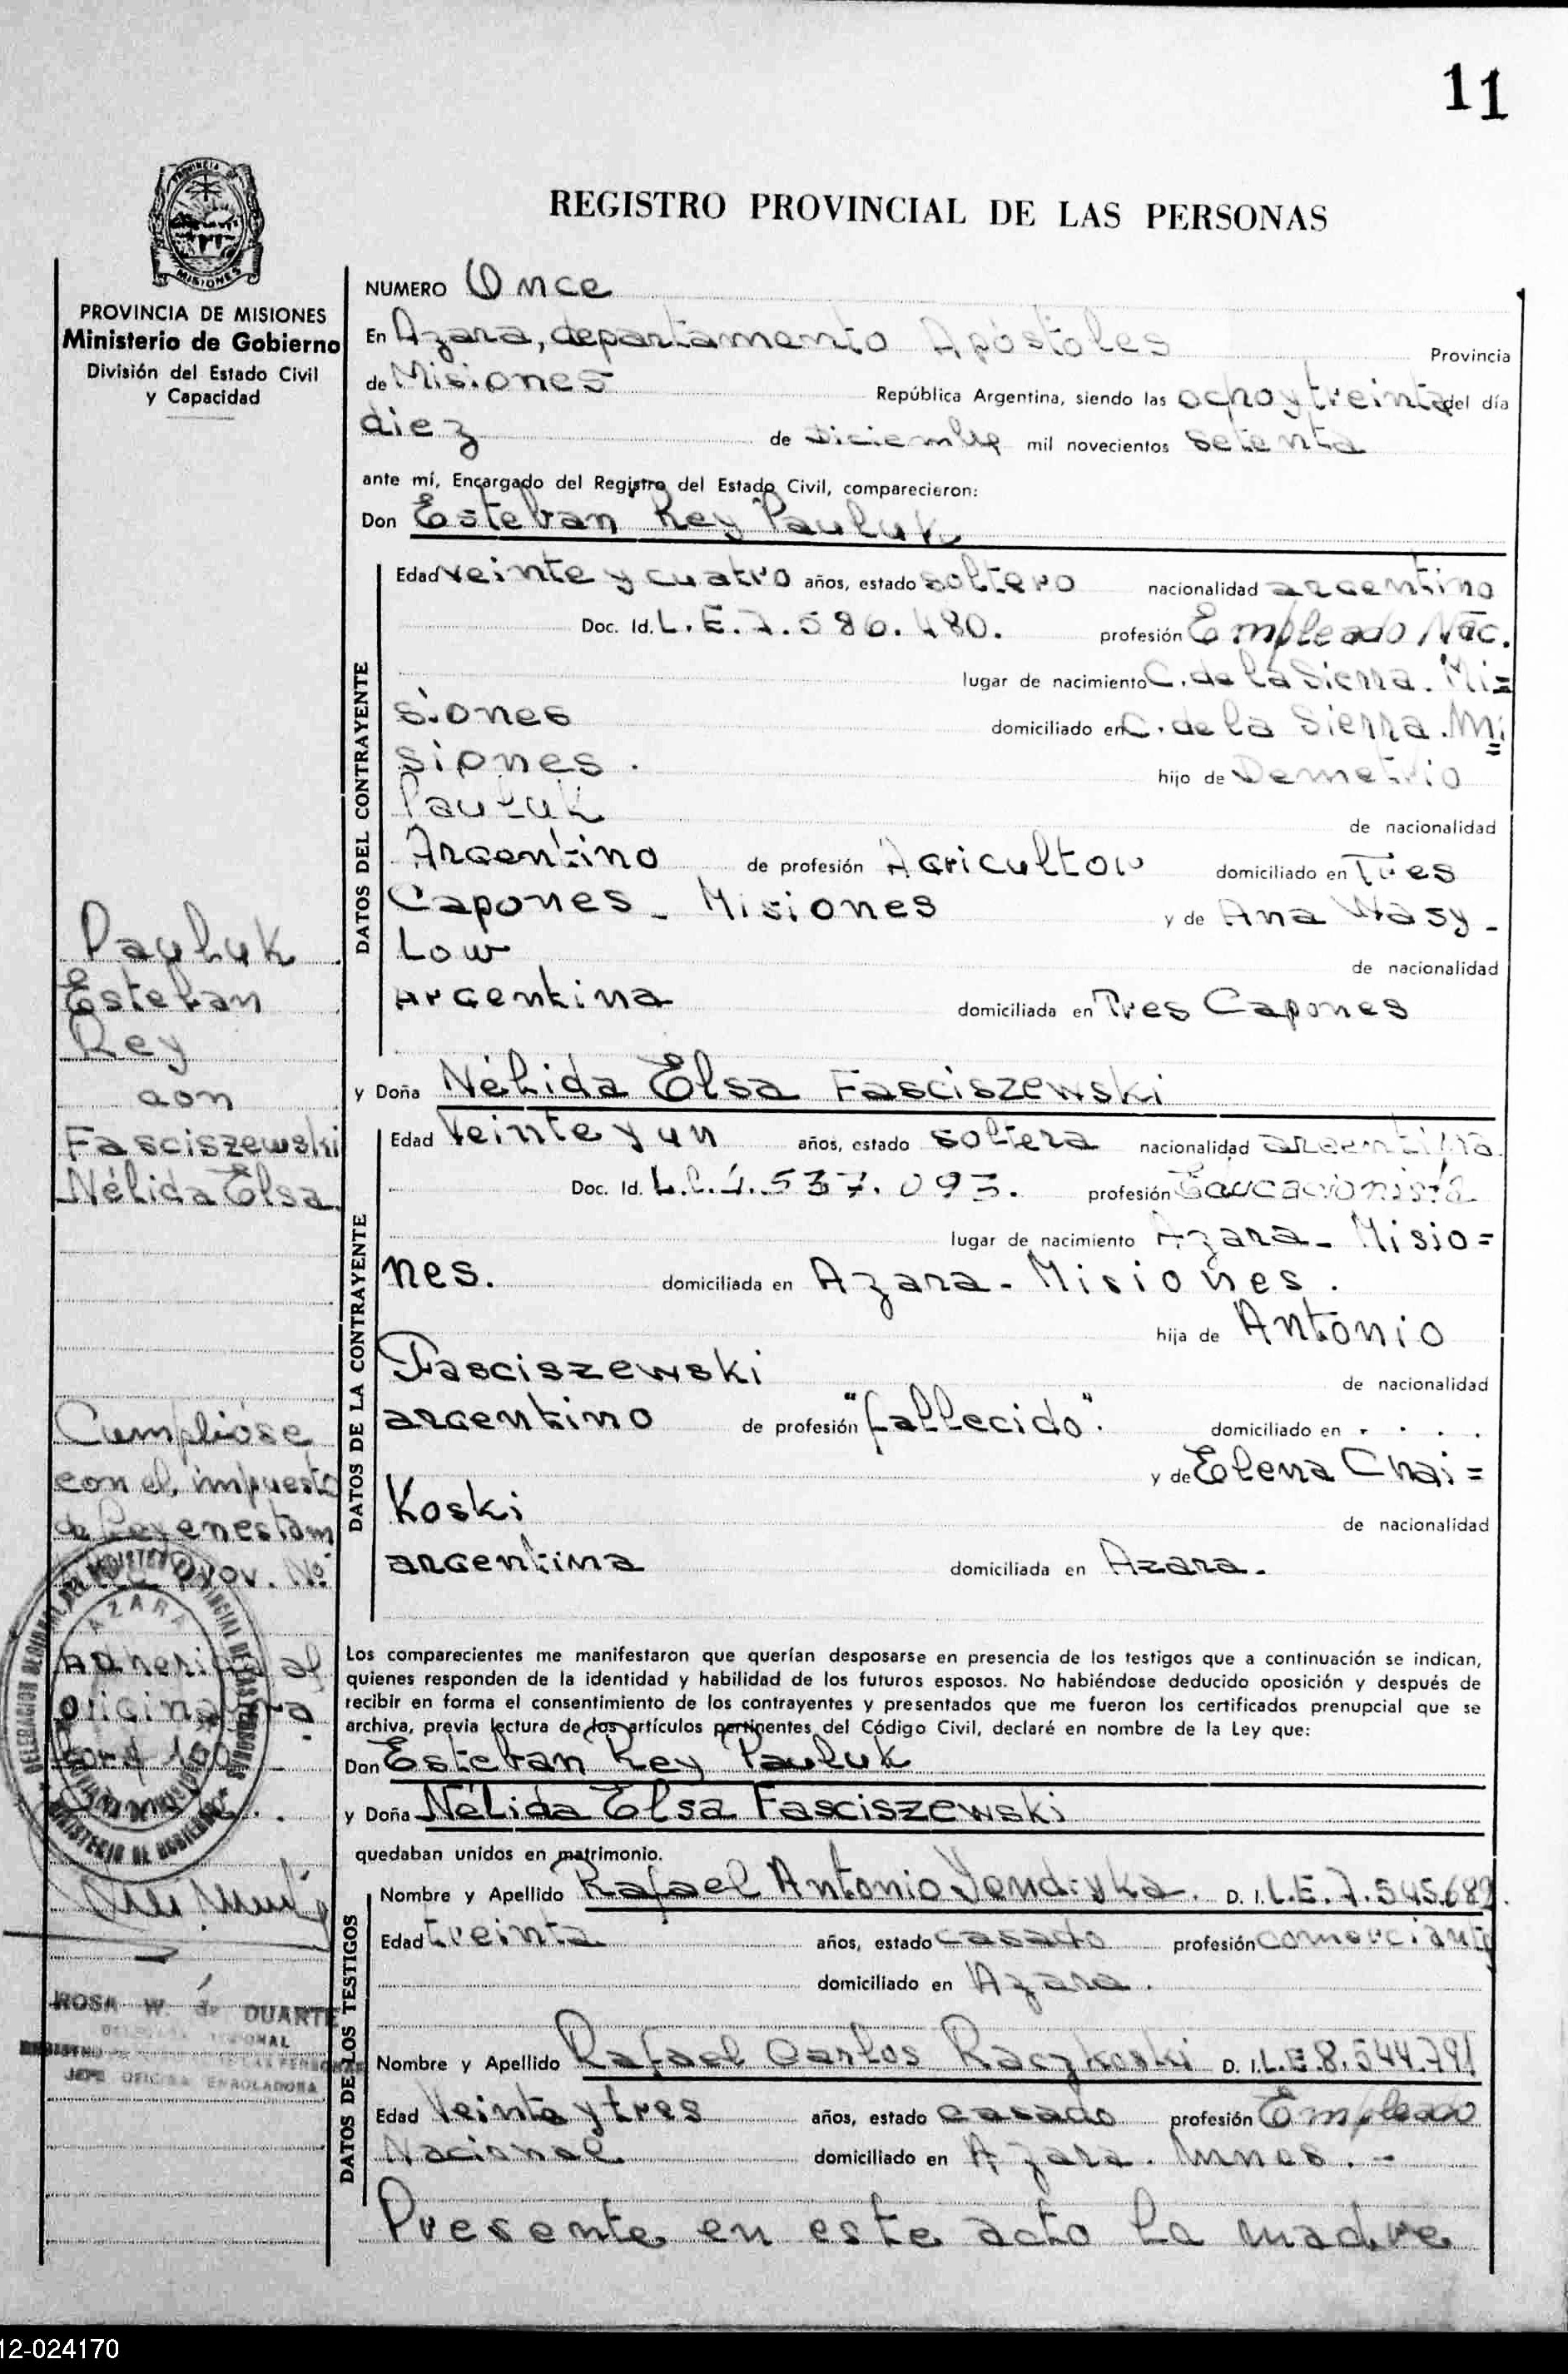 11
REGISTRO PROVINCIAL DE LAS PERSONAS
PROVINCIA DE MISIONES
Ministerio de Gobierno
División del Estado Civil
y Capacidad
NUMERO Once
En Azara, departamento Apóstoles Provincia
de Misiones República Argentina, siendo las ocho y treinta del día
diez de Diciembre mil novecientos setenta
ante mí, Encargado del Registro del Estado Civil, comparecieron:
Don Esteban Rey Pauluk
DATOS DEL CONTRAYENTE
Edad veinte y cuatro años, estado soltero nacionalidad argentino
Doc. Id. L.E.7.586.480. profesión Empleado Nac.
lugar de nacimiento C. de la Sierra. Mi=
siones domiciliado en C. de la Sierra. Mi=
siones. hijo de Demetrio
Pauluk de nacionalidad
Argentino de profesión Agricultor domiciliado en Tres
Capones - Misiones y de Ana Wasy-
Low de nacionalidad
argentina domiciliada en Tres Capones
y Doña Nélida Elsa Fasciszewski
DATOS DE LA CONTRAYENTE
Edad Veinte y un años, estado soltera nacionalidad argentina
Doc. Id. 537.093. profesión Educacionista
lugar de nacimiento Azara - Misio=
nes. domiciliada en Azara - Misiones.
hija de Antonio
Fasciszewski de nacionalidad
argentino de profesión "fallecido". domiciliado en . . . .
y de Elena Chai=
Koski de nacionalidad
argentina domiciliada en Azara.
Los comparecientes me manifestaron que querían desposarse en presencia de los testigos que a continuación se indican,
quienes responden de la identidad y habilidad de los futuros esposos. No habiéndose deducido oposición y después de
recibir en forma el consentimiento de los contrayentes y presentados que me fueron los certificados prenupcial que se
archiva, previa lectura de los artículos pertinentes del Código Civil, declaré en nombre de la Ley que:
Don Esteban Rey Pauluk
y Doña Nélida Elsa Fasciszewski
quedaban unidos en matrimonio.
DATOS DE LOS TESTIGOS
Nombre y Apellido Rafael Antonio Yendryka. D. I. L.E.7.545.689.
Edad treinta años, estado casado profesión comerciante
domiciliado en Azara.
Nombre y Apellido Rafael Carlos Raczkoski D. I. L.E.8.544.791
Edad Veinte y tres años, estado casado profesión Empleado
Nacional domiciliado en Azara. Mnes. -
Presente en este acto la madre
Pauluk
Esteban
Rey
con
Fasciszewski
Nélida Elsa
Cumplióse
con el impuesto
de
Prov. Nº
Adherida al
original
por $ 100
AZARA
MINISTERIO DE GOBIERNO
ROSA W. de DUARTE
DELEGADA REGIONAL
JEFE OFICINA ENROLADORA
12-024170